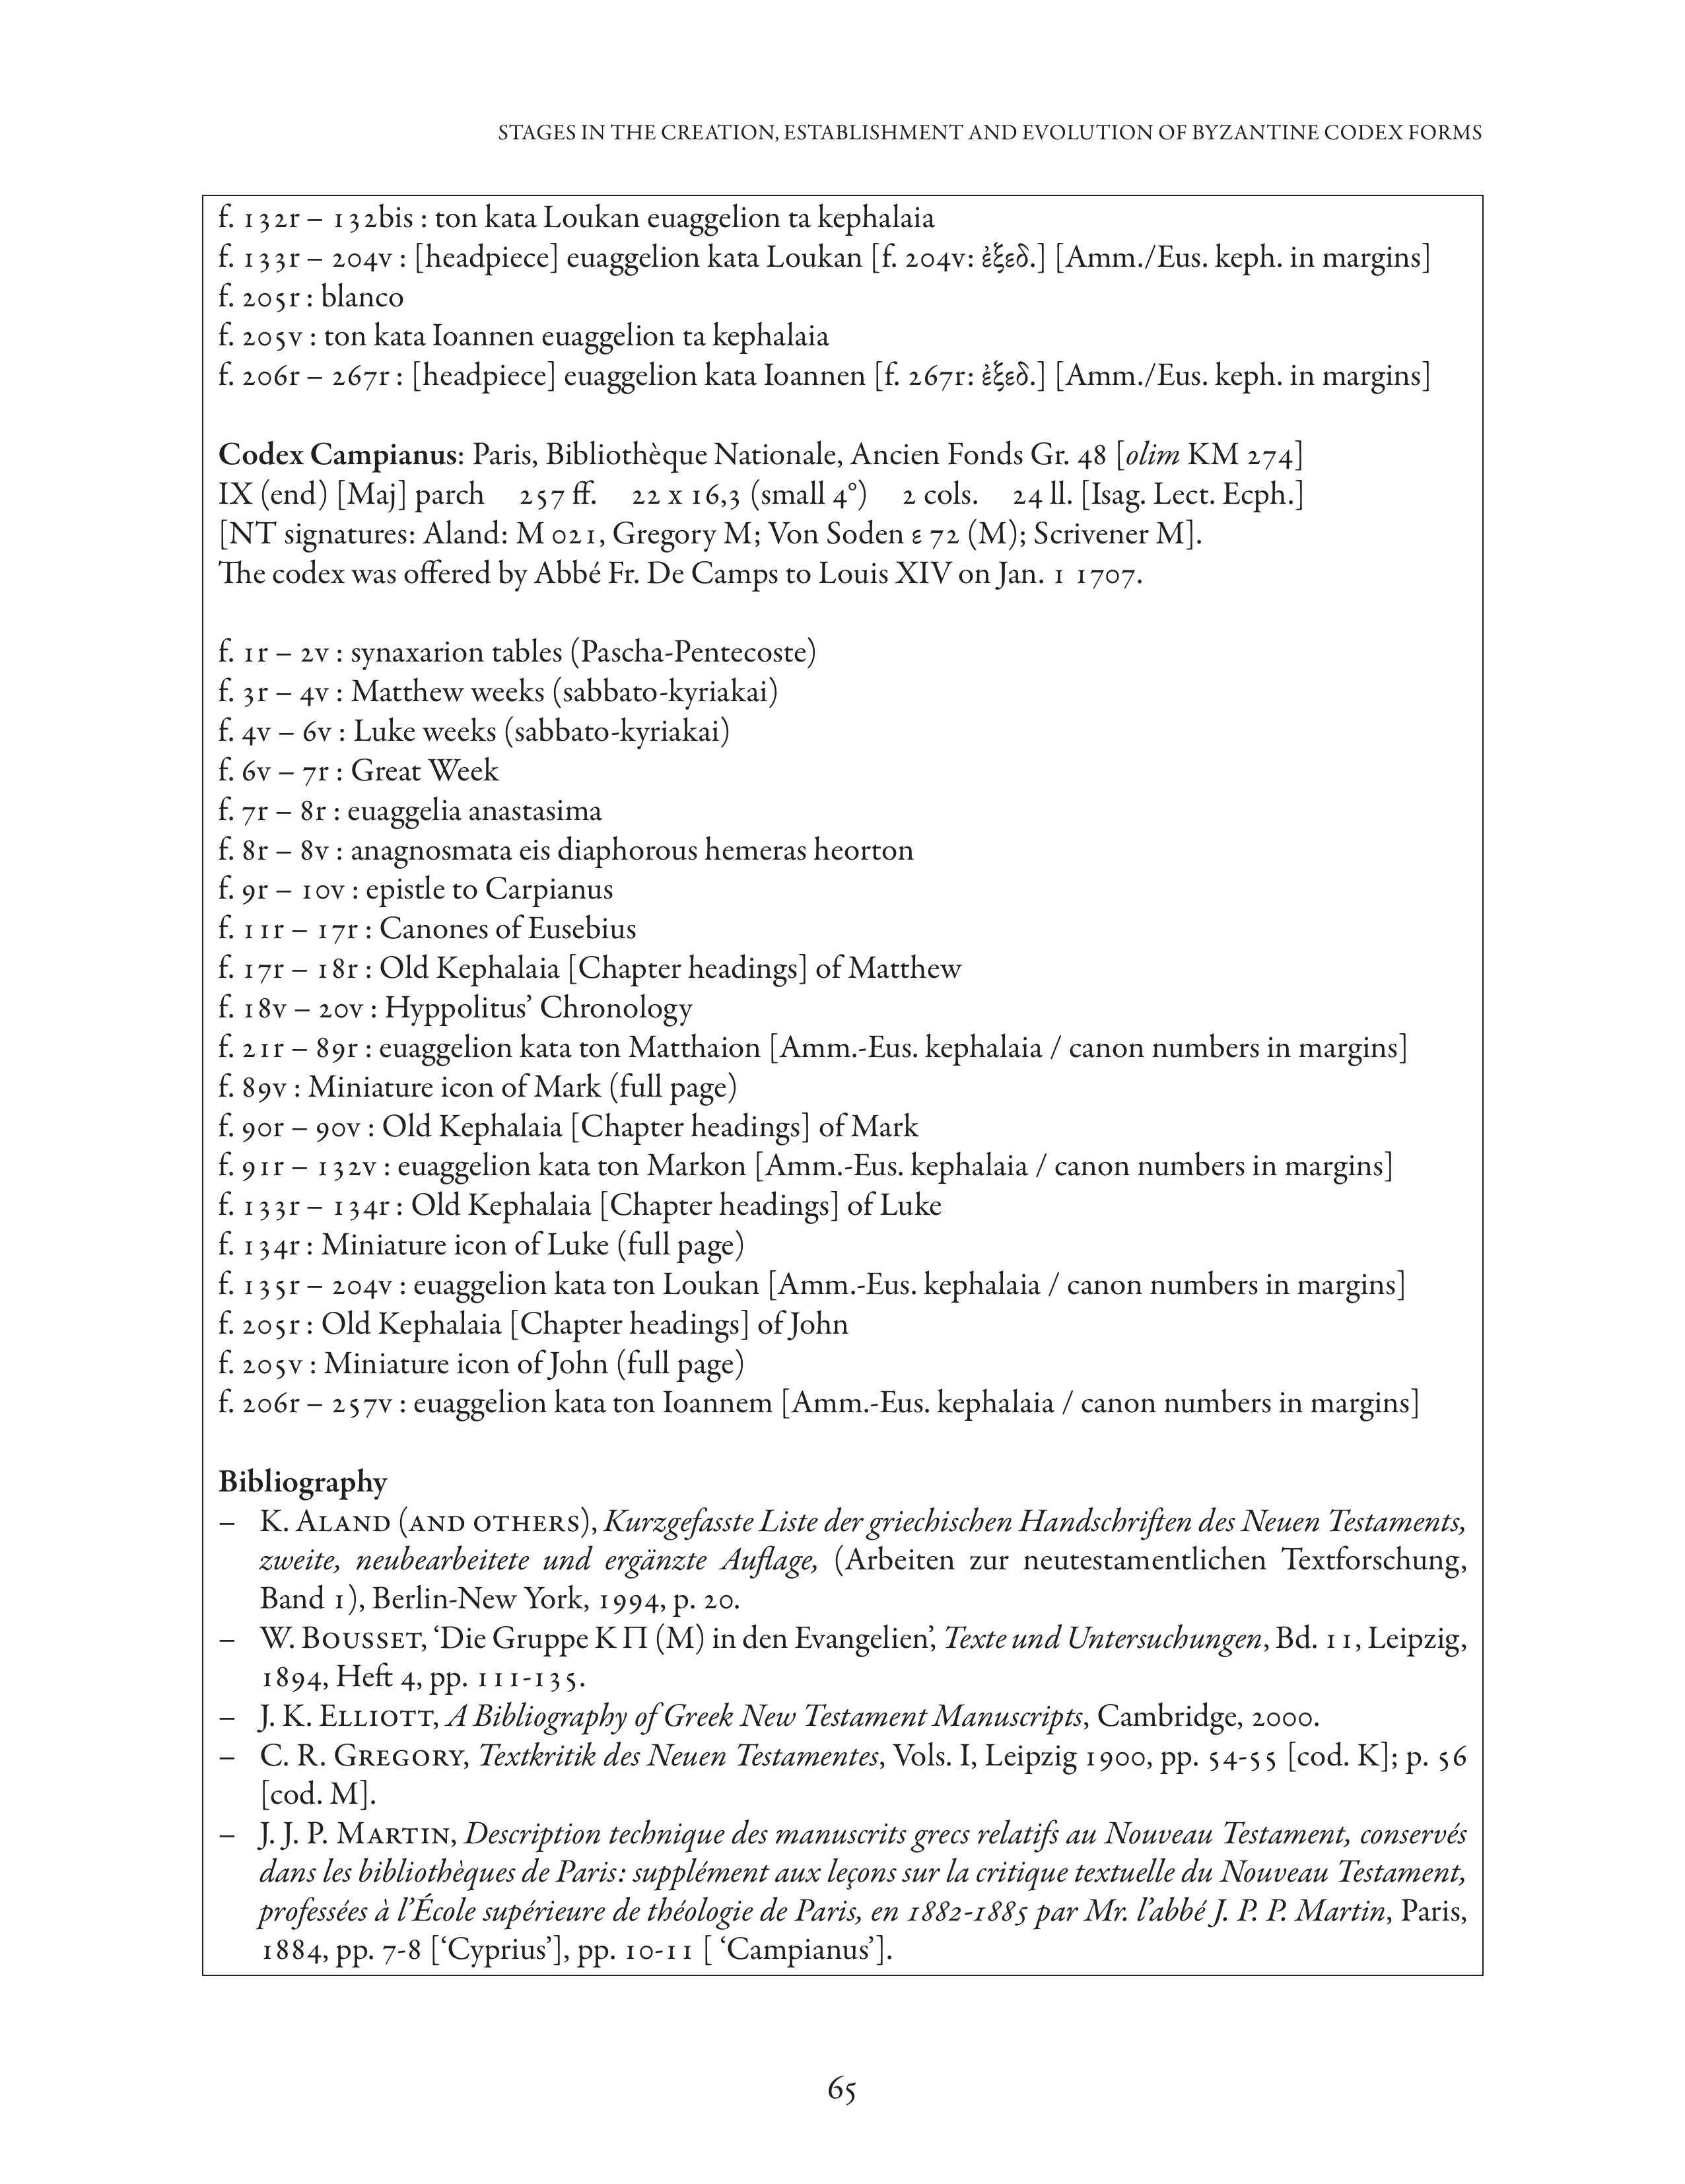 STAGES IN THE CREATION, ESTABLISHMENT AND EVOLUTION OF BYZANTINE CODEX FORMS
f. 132r – 132bis : ton kata Loukan euaggelion ta kephalaia
f. 133r – 204v : [headpiece] euaggelion kata Loukan [f. 204v: ἐξεδ.] [Amm./Eus. keph. in margins]
f. 205r : blanco
f. 205v : ton kata Ioannen euaggelion ta kephalaia
f. 206r – 267r : [headpiece] euaggelion kata Ioannen [f. 267r: ἐξεδ.] [Amm./Eus. keph. in margins]
Codex Campianus: Paris, Bibliothèque Nationale, Ancien Fonds Gr. 48 [olim KM 274]
IX (end) [Maj] parch 257 ff. 22 x 16,3 (small 4°) 2 cols. 24 ll. [Isag. Lect. Ecph.]
[NT signatures: Aland: M 021, Gregory M; Von Soden ε 72 (M); Scrivener M].
The codex was offered by Abbé Fr. De Camps to Louis XIV on Jan. 1 1707.
f. 1r – 2v : synaxarion tables (Pascha-Pentecoste)
f. 3r – 4v : Matthew weeks (sabbato-kyriakai)
f. 4v – 6v : Luke weeks (sabbato-kyriakai)
f. 6v – 7r : Great Week
f. 7r – 8r : euaggelia anastasima
f. 8r – 8v : anagnosmata eis diaphorous hemeras heorton
f. 9r – 10v : epistle to Carpianus
f. 11r – 17r : Canones of Eusebius
f. 17r – 18r : Old Kephalaia [Chapter headings] of Matthew
f. 18v – 20v : Hyppolitus’ Chronology
f. 21r – 89r : euaggelion kata ton Matthaion [Amm.-Eus. kephalaia / canon numbers in margins]
f. 89v : Miniature icon of Mark (full page)
f. 90r – 90v : Old Kephalaia [Chapter headings] of Mark
f. 91r – 132v : euaggelion kata ton Markon [Amm.-Eus. kephalaia / canon numbers in margins]
f. 133r – 134r : Old Kephalaia [Chapter headings] of Luke
f. 134r : Miniature icon of Luke (full page)
f. 135r – 204v : euaggelion kata ton Loukan [Amm.-Eus. kephalaia / canon numbers in margins]
f. 205r : Old Kephalaia [Chapter headings] of John
f. 205v : Miniature icon of John (full page)
f. 206r – 257v : euaggelion kata ton Ioannem [Amm.-Eus. kephalaia / canon numbers in margins]
Bibliography
– K. Aland (and others), Kurzgefasste Liste der griechischen Handschriften des Neuen Testaments,
zweite, neubearbeitete und ergänzte Auflage, (Arbeiten zur neutestamentlichen Textforschung,
Band 1), Berlin-New York, 1994, p. 20.
– W. Bousset, ‘Die Gruppe K Π (M) in den Evangelien’, Texte und Untersuchungen, Bd. 11, Leipzig,
1894, Heft 4, pp. 111-135.
– J. K. Elliott, A Bibliography of Greek New Testament Manuscripts, Cambridge, 2000.
– C. R. Gregory, Textkritik des Neuen Testamentes, Vols. I, Leipzig 1900, pp. 54-55 [cod. K]; p. 56
[cod. M].
– J. J. P. Martin, Description technique des manuscrits grecs relatifs au Nouveau Testament, conservés
dans les bibliothèques de Paris: supplément aux leçons sur la critique textuelle du Nouveau Testament,
professées à l’École supérieure de théologie de Paris, en 1882-1885 par Mr. l’abbé J. P. P. Martin, Paris,
1884, pp. 7-8 [‘Cyprius’], pp. 10-11 [ ‘Campianus’].
65